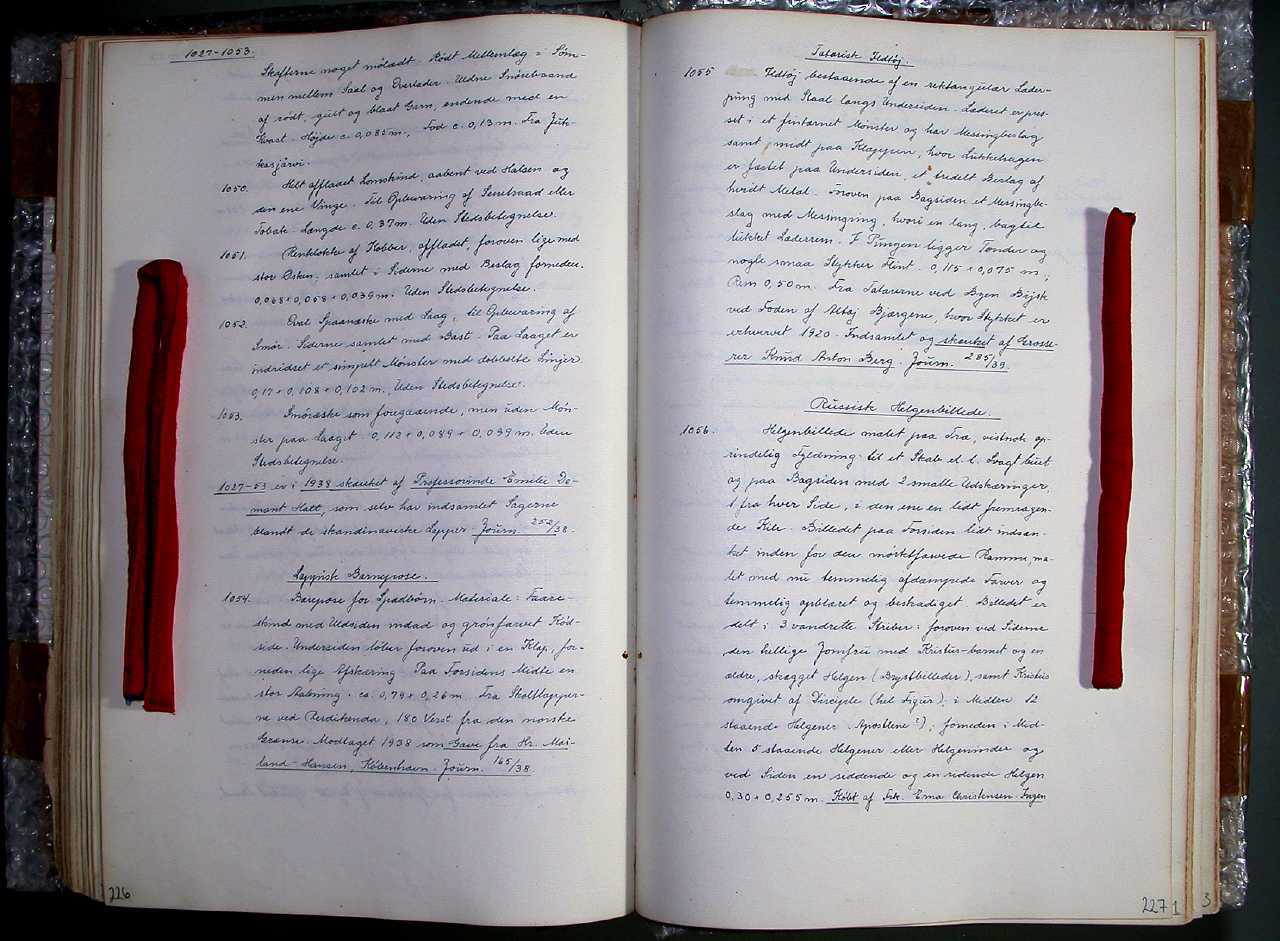 1027-1053.
Skafterne noget mölædt. Rödt Mellemlæg i Söm-
men mellem Saal og Overlæder. Uldne Snörebaand
af rödt, gult og blaat Garn, endende med en
Kvast. Højde c. 0,085 m., Fod c. 0,13 m. Fra Juk-
kasjärvi.
1050. Helt afflaaet Lomskind, aabent ved Halsen og
den ene Vinge. Til Opbevaring af Senetraad eller
Tobak. Længde c. 0,37 m. Uden Stedsbetegnelse.
1051. Renklokke af Kobber, affladet, foroven lige med
stor Øsken, samlet i Siderne med Beslag forneden.
0,068 × 0,058 × 0,039 m. Uden Stedsbetegnelse.
1052. Oval Spaanæske med Laag, til Opbevaring af
Smör. Siderne samlet med Bast. Paa Laaget er
indridset et simpelt Mönster med dobbelte Linjer.
0,17 × 0,108 × 0,102 m. Uden Stedsbetegnelse.
1053. Smöræske som foregaaende, men uden Mön-
ster paa Laaget. 0,113 × 0,089 × 0,099 m. Uden
Stedsbetegnelse.
1027-53 er i 1938 skænket af Professorinde Emilie De-
mant Hatt, som selv har indsamlet Sagerne
blandt de skandinaviske Lapper. Journ. 252/38.
Lappisk Barnepose.
1054. Bærepose for Spædbörn. Materiale: Faare-
skind med Uldsiden indad og grönfarvet Kød-
side. Undersiden löber foroven ud i en Klap, for-
neden lige Afskæring. Paa Forsidens Midte en
stor Aabning. ca. 0,79 × 0,26 m. Fra Skoltlapper-
ne ved Perdikenda, 180 Verst fra den norske
Grænse. Modtaget 1938 som Gave fra Hr. Mai-
land-Hansen, København. Journ. 165/38.
226
Tatarisk Ildtöj.
1055 Ildtöj bestaaende af en rektangulær Læder-
pung med Staal langs Undersiden. Læderet er pres-
set i et fintærnet Mönster og har Messingbeslag
samt, midt paa Klappen, hvor Lukketungen
er fæstet paa Undersiden, et tredelt Beslag af
hvidt Metal. Foroven paa Bagsiden et Messingbe-
slag med Messingring, hvori en lang, bagtil
lukket Læderrem. I Pungen ligger Tönder og
nogle smaa Stykker Flint. 0,115 × 0,075 m.;
Rem 0,50 m. Fra Tatarerne ved Byen Bijsk
ved Foden af Altaj Bjærgene, hvor Stykket er
erhvervet 1920. Indsamlet og skænket af Grosse-
rer Knud Anton Berg. Journ. 285/39.
Russisk Helgenbillede.
1056. Helgenbillede malet paa Træ, vistnok op-
rindelig Fyldning til et Skab e.l. Svagt buet
og paa Bagsiden med 2 smalle Udskæringer,
1 fra hver Side, i den ene en lidt fremragen-
de Kile. Billedet paa Forsiden lidt indsun-
ket inden for den mörktfarvede Ramme, ma-
let med nu temmelig afdæmpede Farver og
temmelig opblæret og beskadiget. Billedet er
delt i 3 vandrette Striber: foroven ved Siderne
den hellige Jomfru med Kristus-barnet og en
ældre, skægget Helgen (Brystbilleder), samt Kristus
omgivet af Disciple (hel Figur); i Midten 12
staaende Helgener (Apostlene?); forneden i Mid-
ten 5 staaende Helgener eller Helgeninder og
ved Siden en siddende og en ridende Helgen
0,30 × 0,255 m. Købt af Frk. Ema Christensen. Ingen
227
1
3